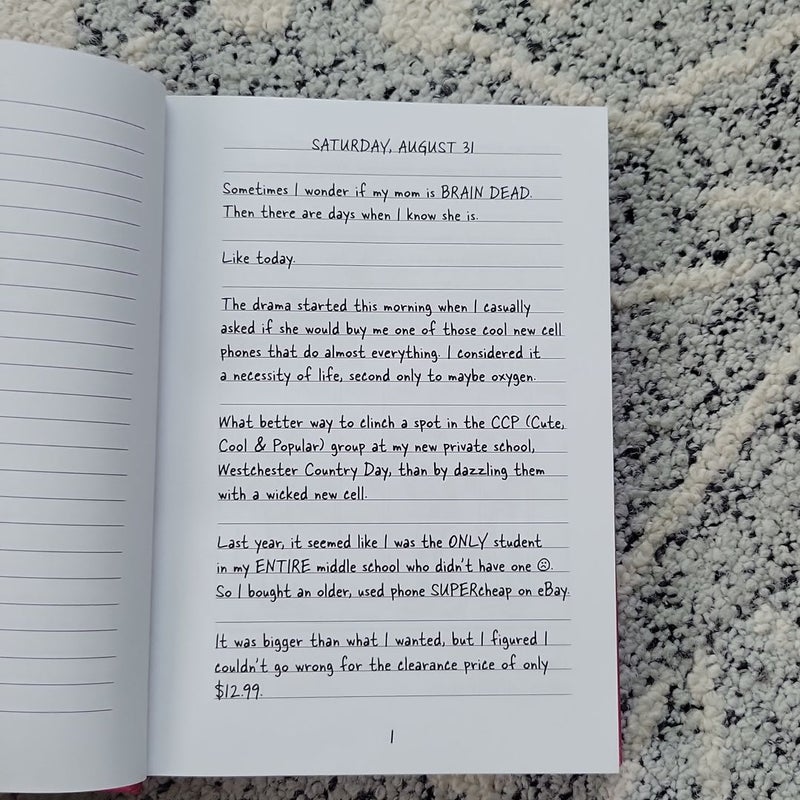 SATURDAY, AUGUST 31
Sometimes I wonder if my mom is BRAIN DEAD.
Then there are days when I know she is.
Like today.
The drama started this morning when I casually
asked if she would buy me one of those cool new cell
phones that do almost everything. I considered it
a necessity of life, second only to maybe oxygen.
What better way to clinch a spot in the CCP (Cute,
Cool & Popular) group at my new private school,
Westchester Country Day, than by dazzling them
with a wicked new cell.
Last year, it seemed like I was the ONLY student
in my ENTIRE middle school who didn't have one ☹.
So I bought an older, used phone SUPERcheap on eBay.
It was bigger than what I wanted, but I figured I
couldn't go wrong for the clearance price of only
$12.99.
1